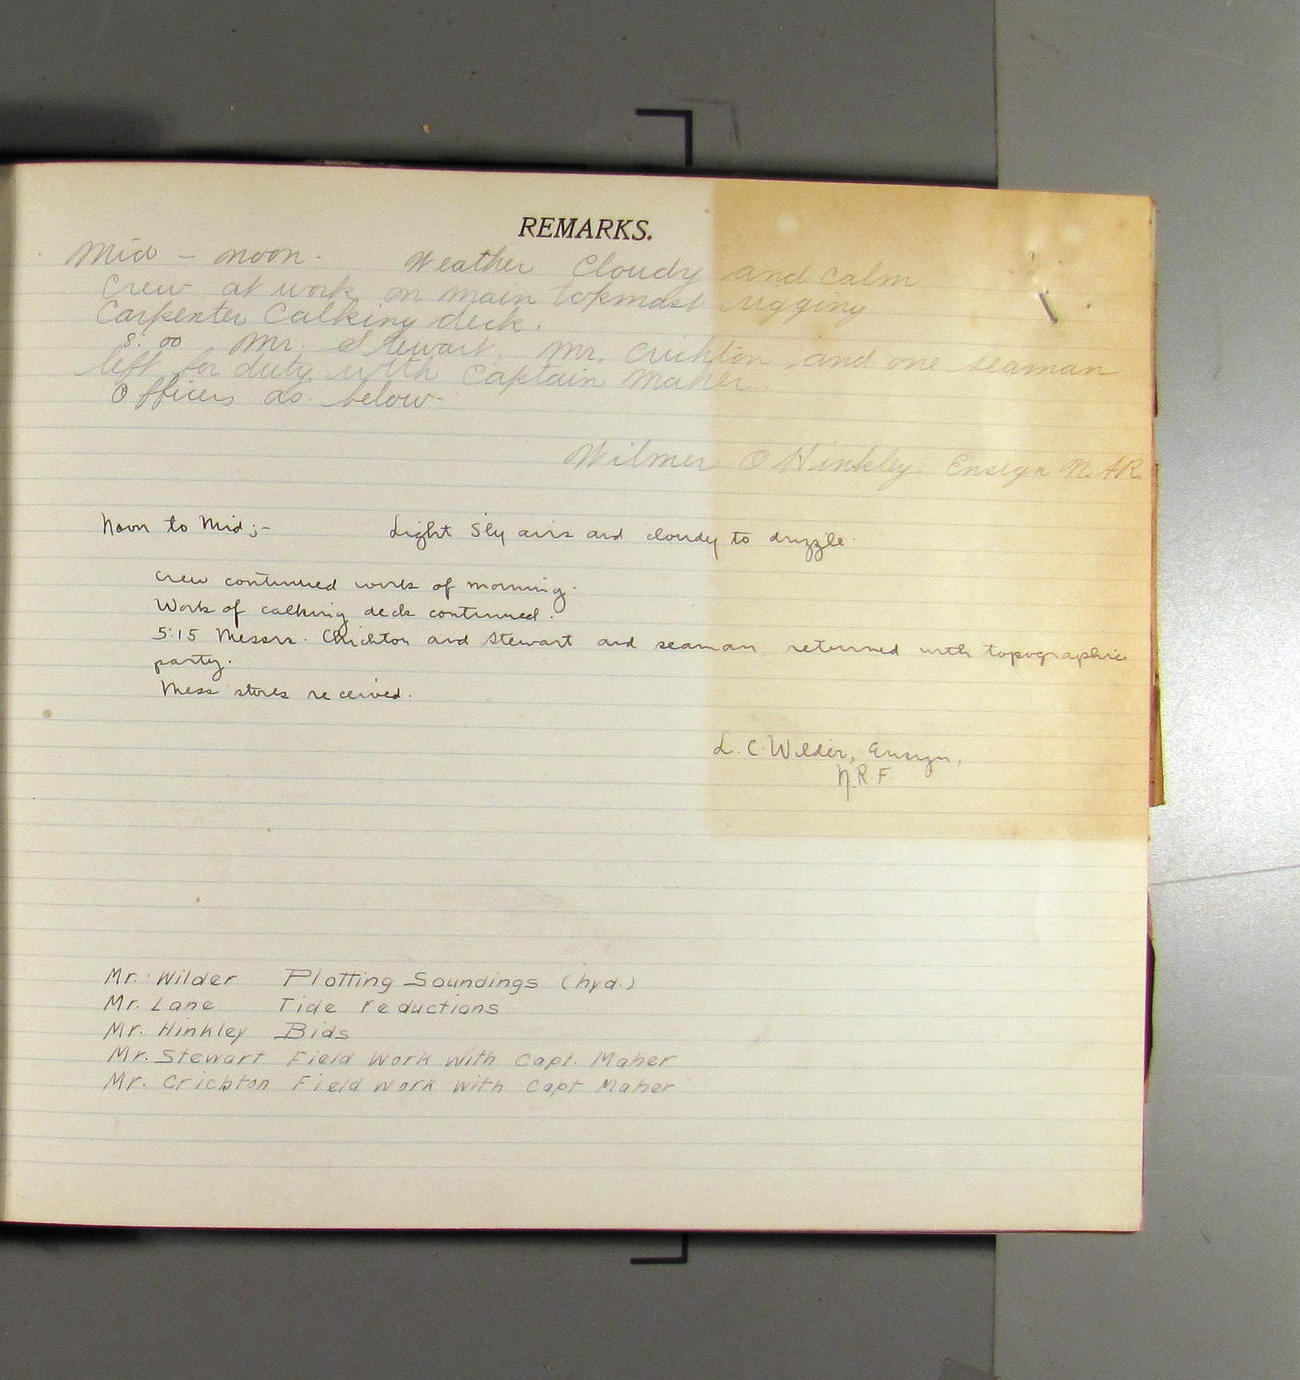 REMARKS.
Mid - noon. Weather Cloudy and calm
Crew at work on main topmast rigging
Carpenter Calking deck.
8:00 Mr. Stewart, Mr. Crichton and one seaman
left for duty with Captain Maher.
Officers as below-
Wilmer O Hinkley Ensign
Noon to Mid;- Light Sly airs and cloudy to drizzle.
Crew continued work of morning.
Work of calking deck continued.
5:15 Messrs. Crichton and Stewart and seaman returned with topographic
party.
Mess stores received.
L. C. Wilder, Ensign,
N.R.F
Mr. Wilder Plotting Soundings (hyd.)
Mr. Lane Tide reductions
Mr. Hinkley Bids
Mr. Stewart Field Work With Capt. Maher
Mr. Crichton Field Work With Capt Maher